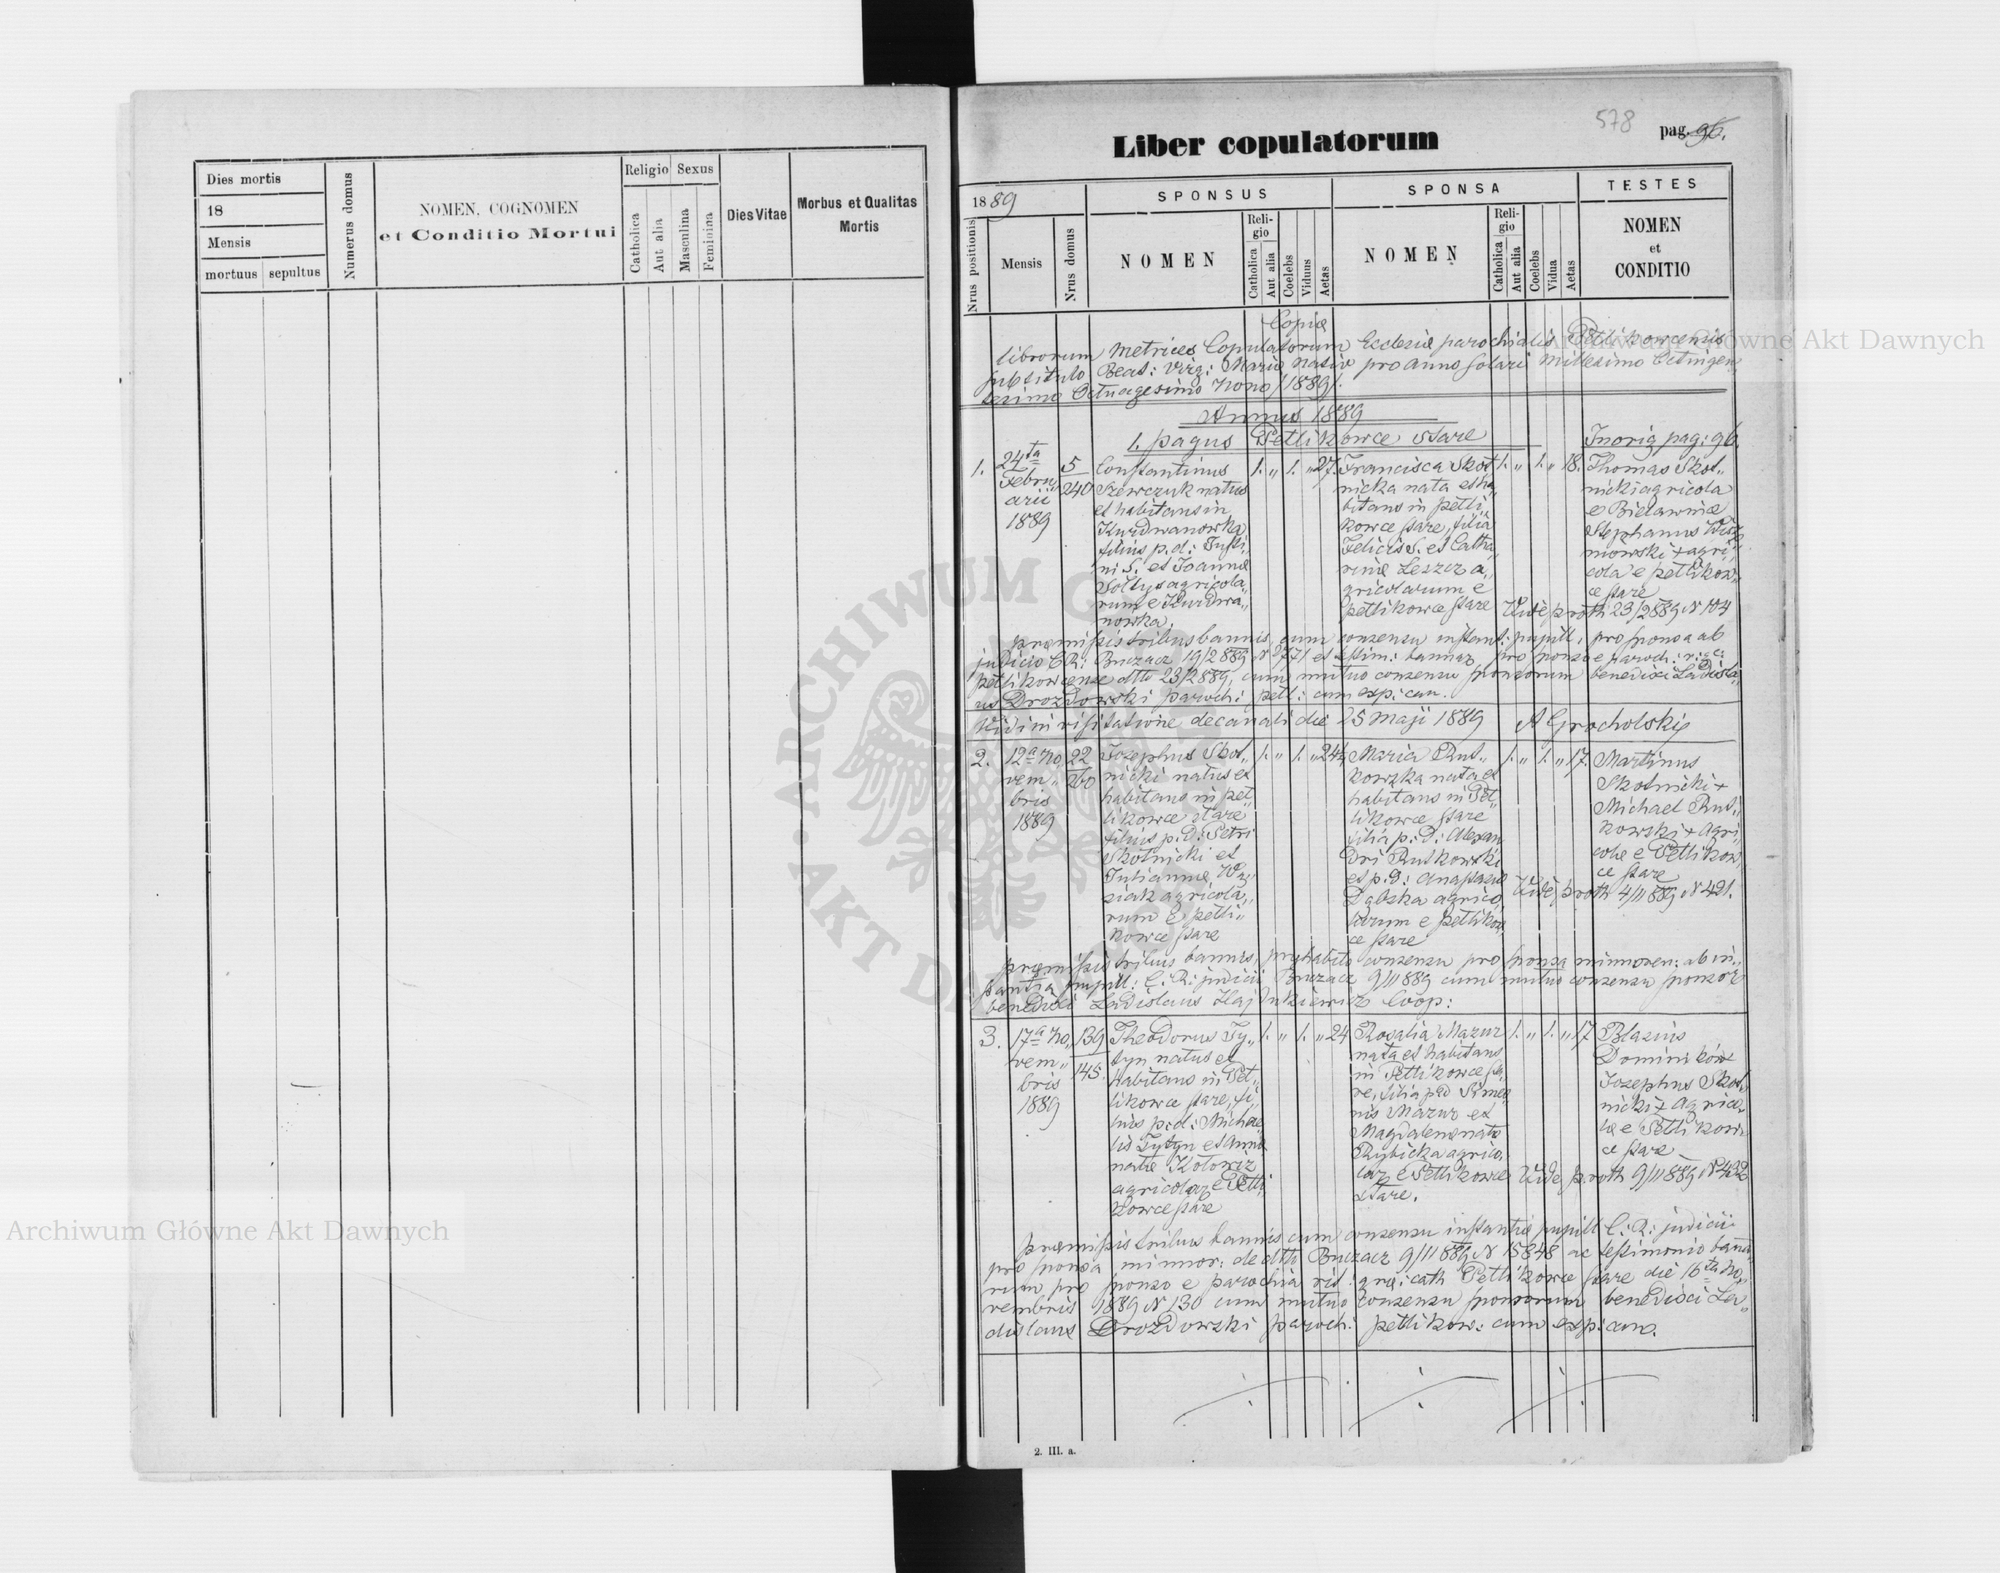 Dies mortis
18
Mensis
mortuus sepultus
Numerus domus
NOMEN, COGNOMEN
et Conditio Mortui
Religio Sexus
Catholica
Aut alia
Masculina
Feminina
Dies Vitae
Morbus et Qualitas
Mortis
578 pag. 96.
Liber copulatorum
1889
SPONSUS
SPONSA
TESTES
Nrus positionis
Mensis
Nrus domus
NOMEN
Reli-
gio
Catholica
Aut alia
Coelebs
Viduus
Aetas
NOMEN
Reli-
gio
Catholica
Aut alia
Coelebs
Vidua
Aetas
NOMEN
et
CONDITIO
Copia
librorum Metrices Copulatorum Ecclesiæ parochialis Petlikowcensis
sub titulo Beat: Virg: Mariæ pro anno Solari Millesimo Octingen
tesimo Octuagesimo Nono /1889/.
Annus 1889
1. pagus Petlikowce stare
In orig pag: 96
1.
24ta
Febru
arii
1889
5
240
Constantinus
Szewczuk natus
et habitans in
Kurdwanowka
filius p. d: Justi,,
ni S. et Joannæ
Soltys agricola,
rum e Kurdwa,,
nowka.
1. ,, 1. ,, 27.
Francisca Skot
nicka nata et ha,
bitans in Petli,,
kowce stare, filia
Felicis S. et Catha,
rinæ Leszcz a,,
gricolarum e
Petlikowce stare
1. ,, 1. ,, 18.
Thomas Skot,,
nicki agricola
e Bielawinæ
Stephanus Wisz
niowski + agri,,
cola e Petlikow,,
ce stare
Vide proth 23/2 889 N 104
præmissis tribus bannis, cum consensu instant: pupill, pro sponsa ab
judicio C.R: Buczacz 19/2 889 N 2771 et testim: bannor pro sponso e paroch:
petlikowcense dtto 23/2 889, cum mutuo consensu sponsorum benedixi Ladisla,
us Drozdowski paroch: petl: cum exp: can.
Vidi in visitatione decanali die 25 Maji 1889 A Grocholski
2.
12a No,
vem,,
bris
1889
22
260
Josephus Skot,,
nicki natus et
habitans in Pet,,
likowce stare
filius p: D: Petri
Skotnicki et
Julianne
agricola,,
rum e Petli,,
kowce stare
1. ,, 1. ,, 24½
Maria Rut,,
kowska nata et
habitans in Pet,,
likowce stare
filia p: D: Alexan
dri Rutkowski
et p: D: Anastasiæ
Dąbska agrico,
larum e Petlikow,
ce stare
1. ,, 1. ,, 17.
Martinus
Skotnicki +
Michael Rut,
kowski + Agri
colæ e Petlikow,
ce stare
Vide proth 4/11 889 N 421.
præmissis tribus bannis, præhabito consensu pro sponsa minoren: ab in,,
stantia pupill: C: R: judicii Buczacz 9/11 889 cum mutuo consensu sponsor
benedixi Ladislaus Hajdukiewicz Coop:
3.
17a No,,
vem,,
bris
1889
139
145.
Theodorus Ty,,
tyn natus et
habitans in Pet,,
likowce stare, fi,,
lius p: d: Micha,,
lis Tytyn et Annæ
natæ Kolowiz
agricolar e Petli
kowce stare
1. ,, 1. ,, 24
Rosalia Mazur
nata et habitans
in Petlikowce sta,
re, filia p: D Simeo,
nis Mazur et
Magdalenæ nata
Rybicka agrico,
lar e Petlikowce
stare.
1. ,, 1. ,, 17
Blasius
Dominików
Josephus Skot,
nicki + Agrico,
læ e Petlikow,
ce stare
Vide proth 9/11 889 N 432
præmissis tribus bannis cum consensu instantiæ pupill C: R: judicii
pro sponsa minnor: de dtto Buczacz 9/11 889 N 15848 ac testimonio banno
rum pro sponso e parochia rit: græ: cath Petlikowce stare die 16ta No,
vembris 1889 N 130 cum mutuo consensu sponsorum benedixi La,,
dislaus Drozdowski paroch: petlikow: cum exp: can.
2. III. a.
Archiwum Główne Akt Dawnych
Archiwum Główne Akt Dawnych